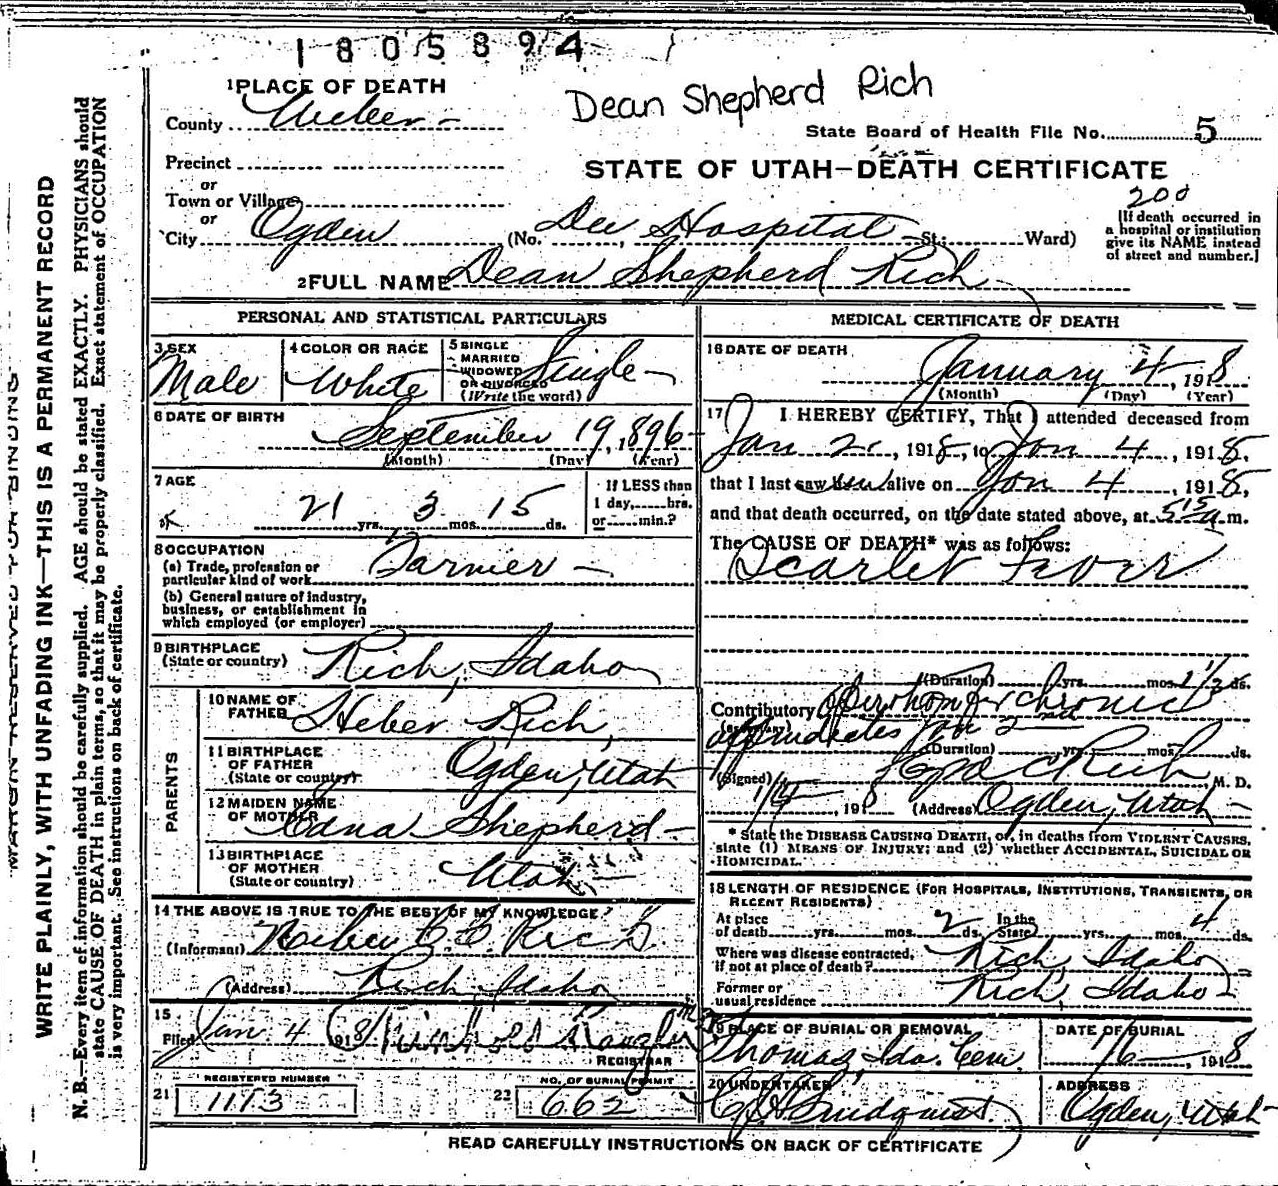 1805894
1 PLACE OF DEATH
Dean Shepherd Rich
County Weber
State Board of Health File No. 5
Precinct
STATE OF UTAH—DEATH CERTIFICATE
or
Town or Village
200
or
City Ogden (No. Dee Hospital St.; Ward)
[If death occurred in
a hospital or institution
give its NAME instead
of street and number.]
2 FULL NAME Dean Shepherd Rich
PERSONAL AND STATISTICAL PARTICULARS
3 SEX
Male
4 COLOR OR RACE
White
5 SINGLE
MARRIED
WIDOWED
OR DIVORCED
(Write the word)
Single
6 DATE OF BIRTH
September 19, 1896
(Month) (Day) (Year)
7 AGE
21 yrs. 3 mos. 15 ds.
If LESS than
1 day, hrs.
or min.?
8 OCCUPATION
(a) Trade, profession or
particular kind of work Farmer
(b) General nature of industry,
business, or establishment in
which employed (or employer)
9 BIRTHPLACE
(State or country) Rich, Idaho
PARENTS
10 NAME OF
FATHER Heber Rich,
11 BIRTHPLACE
OF FATHER
(State or country) Ogden, Utah
12 MAIDEN NAME
OF MOTHER Edna Shepherd
13 BIRTHPLACE
OF MOTHER
(State or country) Utah
14 THE ABOVE IS TRUE TO THE BEST OF MY KNOWLEDGE
(Informant) Heber C. Rich
(Address) Rich, Idaho
15
Filed Jan. 4 1918
REGISTRAR
REGISTERED NUMBER
21 1113
NO. OF BURIAL PERMIT
22 662
MEDICAL CERTIFICATE OF DEATH
16 DATE OF DEATH
January 4, 1918
(Month) (Day) (Year)
17 I HEREBY CERTIFY, That I attended deceased from
Jan 2, 1918, to Jan 4, 1918,
that I last saw him alive on Jan 4, 1918,
and that death occurred, on the date stated above, at 5:15 a.m.
The CAUSE OF DEATH* was as follows:
Scarlet Fever
(Duration) yrs. mos. ds.
Contributory Operation for chronic
appendicitis Jan 2nd
(Duration) yrs. mos. ds.
(Signed) Rich, M. D.
1918 (Address) Ogden, Utah
* State the DISEASE CAUSING DEATH, or, in deaths from VIOLENT CAUSES,
state (1) MEANS OF INJURY; and (2) whether ACCIDENTAL, SUICIDAL OR
HOMICIDAL.
18 LENGTH OF RESIDENCE (FOR HOSPITALS, INSTITUTIONS, TRANSIENTS, OR
RECENT RESIDENTS)
At place
of death yrs. mos. 2 ds.
In the
State yrs. mos. 4 ds.
Where was disease contracted,
if not at place of death? Rich, Idaho
Former or
usual residence Rich, Idaho
19 PLACE OF BURIAL OR REMOVAL
Thomas, Ida. Cem.
DATE OF BURIAL
1/6 1918
20 UNDERTAKER
Lindquist
ADDRESS
Ogden, Utah
READ CAREFULLY INSTRUCTIONS ON BACK OF CERTIFICATE
MARGIN RESERVED FOR BINDING
WRITE PLAINLY, WITH UNFADING INK—THIS IS A PERMANENT RECORD
N. B.—Every item of information should be carefully supplied. AGE should be stated EXACTLY. PHYSICIANS should
state CAUSE OF DEATH in plain terms, so that it may be properly classified. Exact statement of OCCUPATION
is very important. See instructions on back of certificate.